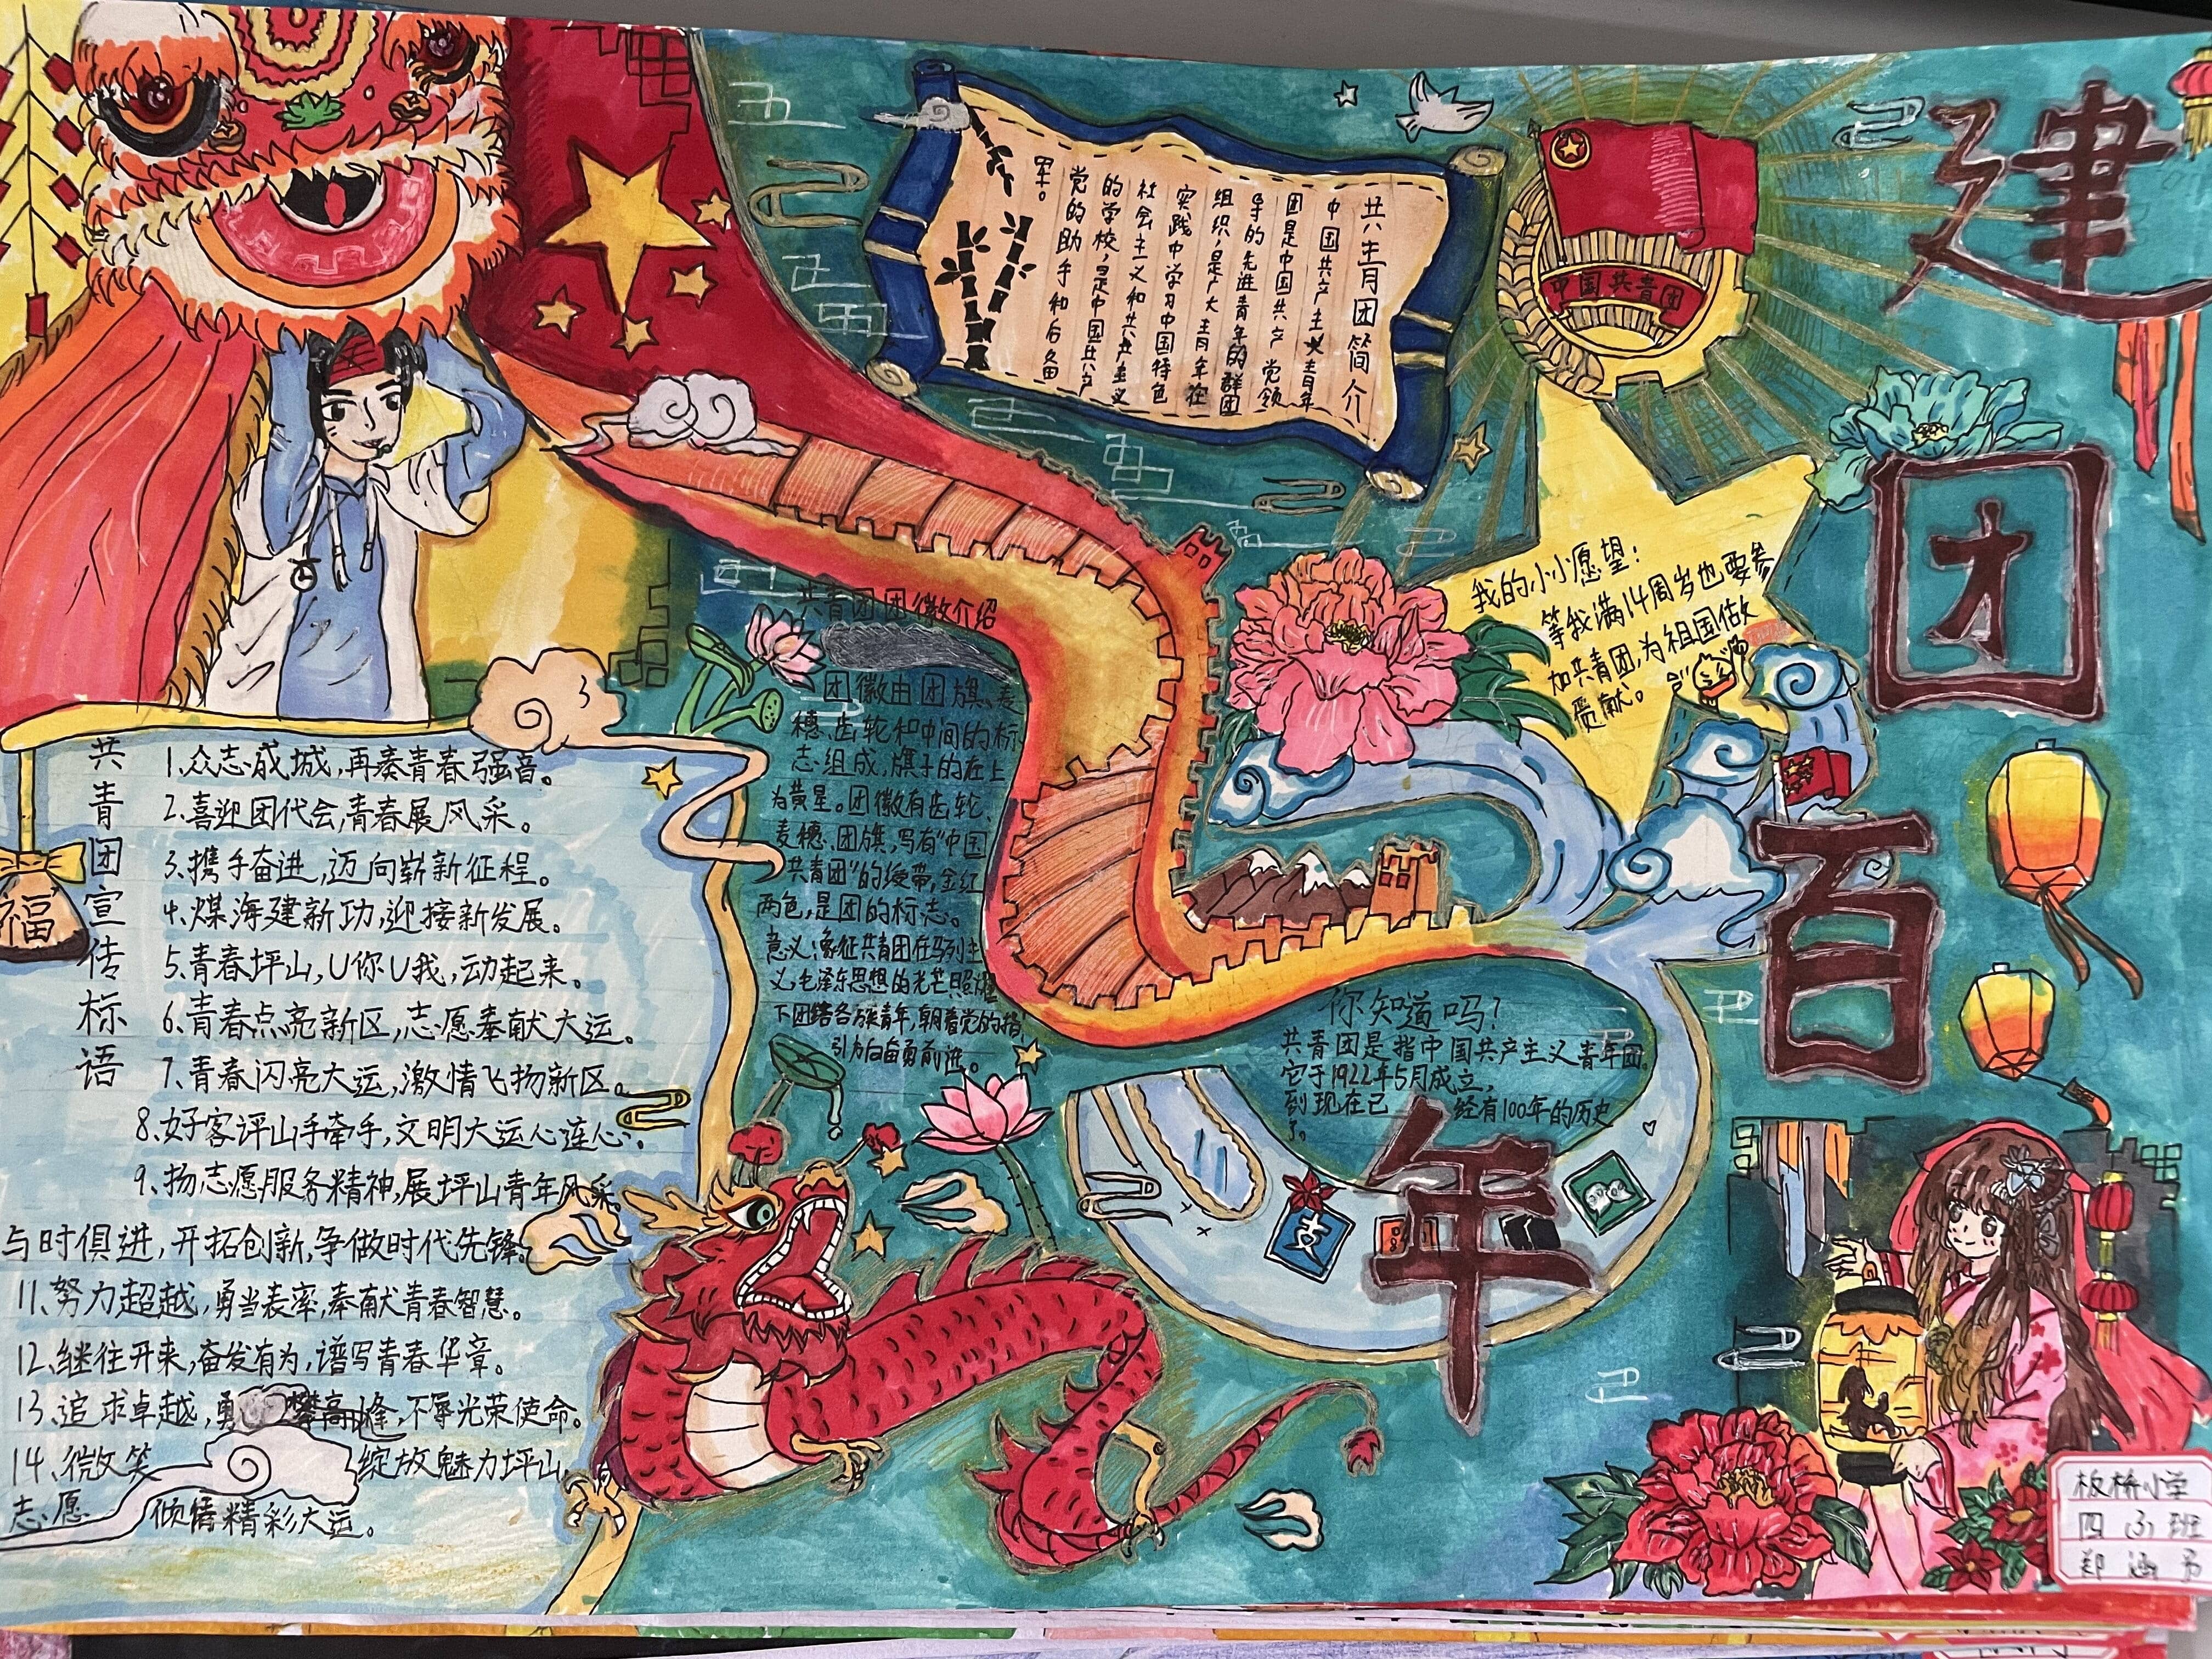 建团百年
共青团简介
中国共产主义青年
团是中国共产党领
导的先进青年的群团
组织,是广大青年在
实践中学习中国特色
社会主义和共产主义
的学校,是中国共产
党的助手和后备
军。
中国共青团
我的小小愿望:
等我满14周岁也要参
加共青团,为祖国做
贡献。
共青团团徽介绍
团徽由团旗、麦
穗、齿轮和中间的标
志组成,旗子的左上
为黄星。团徽有齿轮、
麦穗、团旗,写有“中国
共青团”的绶带,金红
两色,是团的标志。
意义:象征共青团在马列主
义,毛泽东思想的光芒照耀
下团结各族青年,朝着党的指
引方向奋勇前进。
你知道吗?
共青团是指中国共产主义青年团。
它于1922年5月成立,
到现在已 经有100年的历史
了。
共青团宣传标语
1、众志成城,再奏青春强音。
2、喜迎团代会,青春展风采。
3、携手奋进,迈向崭新征程。
4、煤海建新功,迎接新发展。
5、青春坪山,U你U我,动起来。
6、青春点亮新区,志愿奉献大运。
7、青春闪亮大运,激情飞扬新区。
8、好客评山手牵手,文明大运心连心。
9、扬志愿服务精神,展坪山青年风采。
与时俱进,开拓创新,争做时代先锋。
11、努力超越,勇当表率,奉献青春智慧。
12、继往开来,奋发有为,谱写青春华章。
13、追求卓越,勇攀高峰,不辱光荣使命。
14、微笑 绽放魅力坪山,
志愿 倾情精彩大运。
福
支
板桥小学
四(3)班
郑涵